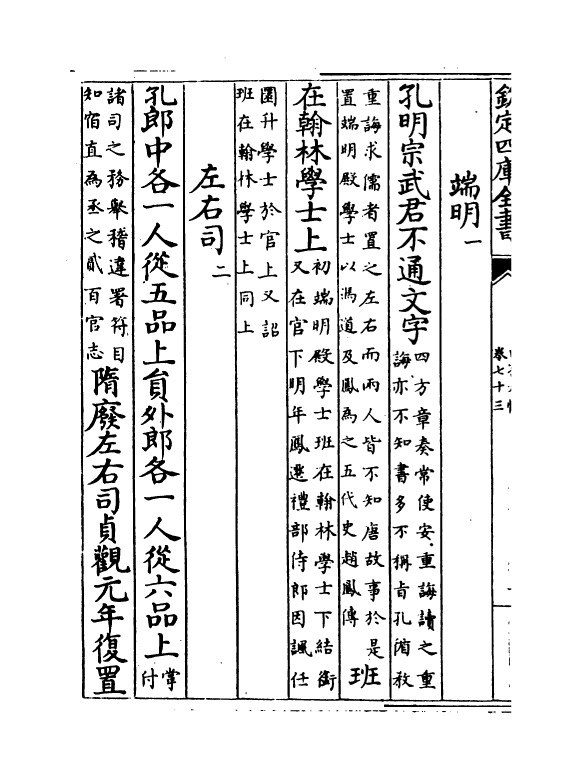 欽定四庫全書
卷七十三
端明一
孔明宗武君不通文字四方章奏常使安重誨讀之重
誨亦不知書多不稱旨孔循教
重誨求儒者置之左右而兩人皆不知唐故事於是
置端明殿學士以馮道及鳳為之五代史趙鳳傳班
在翰林學士上初端明殿學士班在翰林學士下結銜
又在官下明年鳳遷禮部侍郎因諷任
圜升學士於官上又詔
班在翰林學士上同上
左右司二
孔郎中各一人從五品上貟外郎各一人從六品上掌
付
諸司之務舉稽違署符目
知宿直為丞之貳百官志隋廢左右司貞觀元年復置